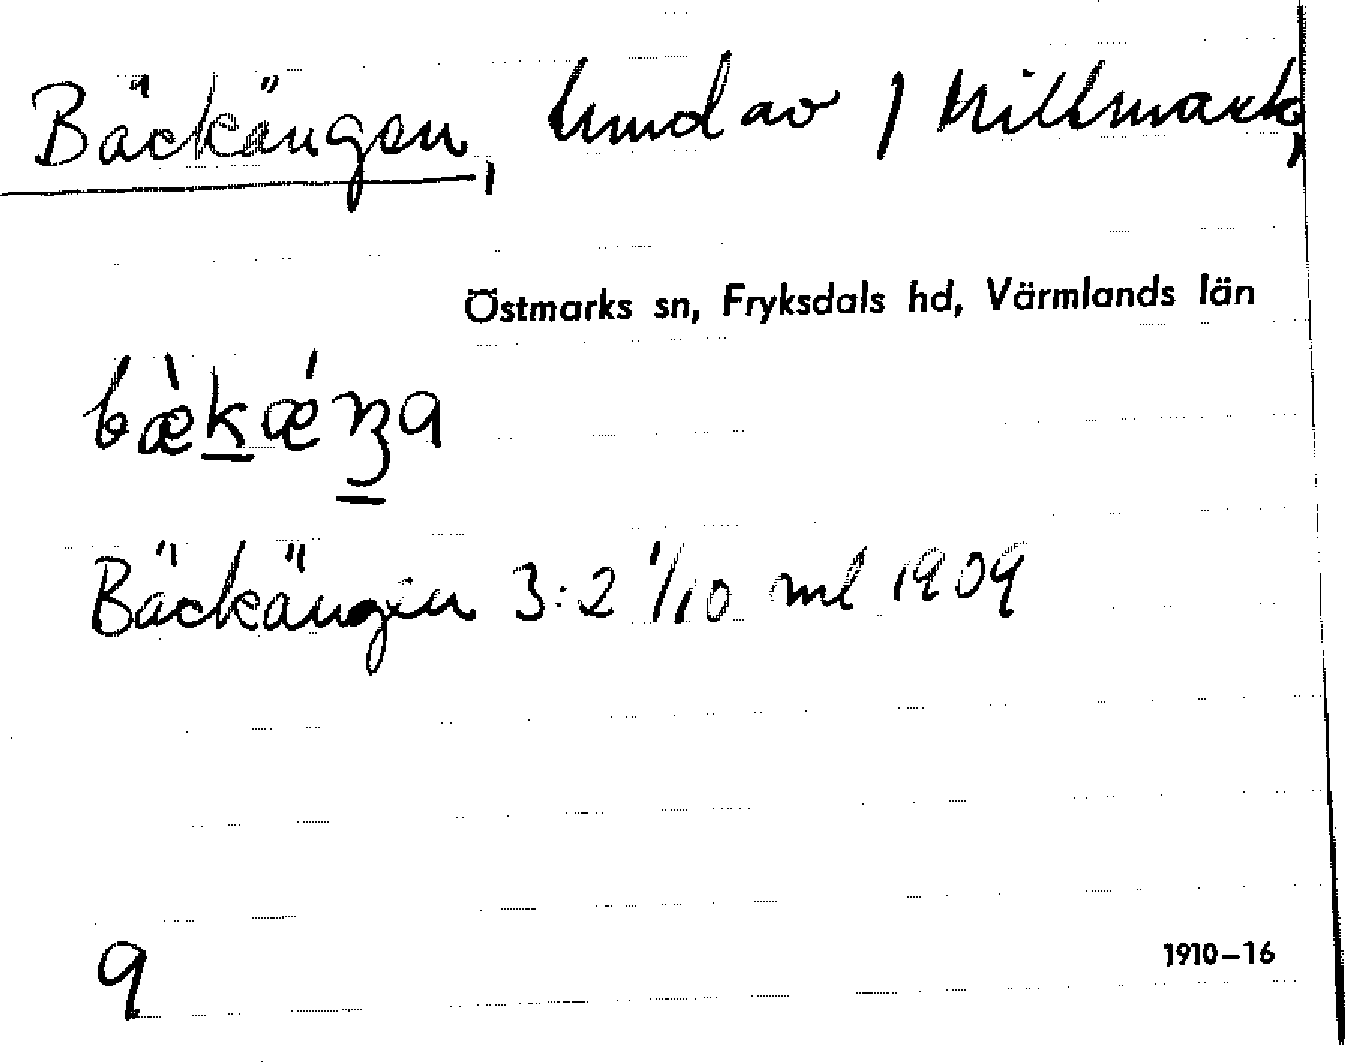 Bäckängen, hmd av 1 Millmark,
Östmarks sn, Fryksdals hd, Värmlands län
bæ̀kǽŋa
Bäckängen 3:2 1/10 ml 1909
9
1910–16